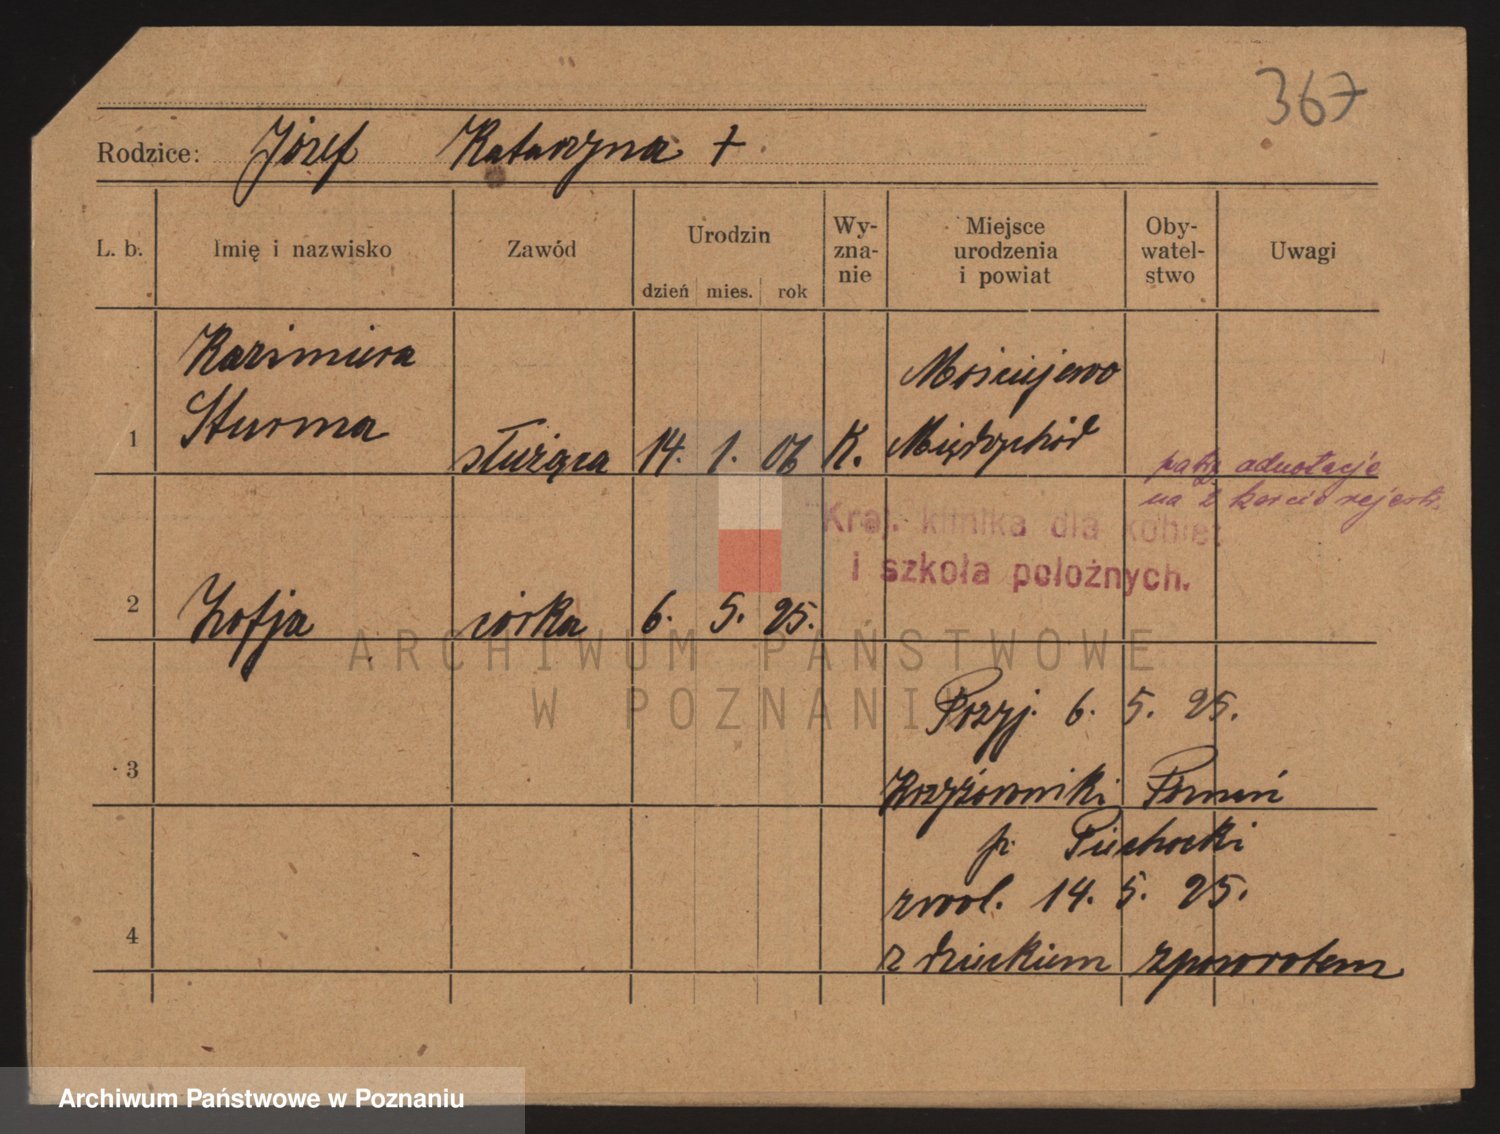 367
Rodzice: Józef Katarzyna +
L. b. Imię i nazwisko Zawód Urodzin dzień mies. rok Wy-zna-nie Miejsce urodzenia i powiat Oby-watel-stwo Uwagi
Kazimiera Mościejewo
1 Sturma służąca 14. 1. 06 K. Międzychód
patrz adnotację
na 2 karcie rejestr.
Kraj. klinika dla kobiet
i szkoła położnych.
2 Zofja córka 6. 5. 25.
ARCHIWUM PAŃSTWOWE
W POZNANIU
Przyj. 6. 5. 25.
3 Krzyżowniki Poznań
p. Piechocki
zwol. 14. 5. 25.
4 z dzieckiem zpowrotem
Archiwum Państwowe w Poznaniu